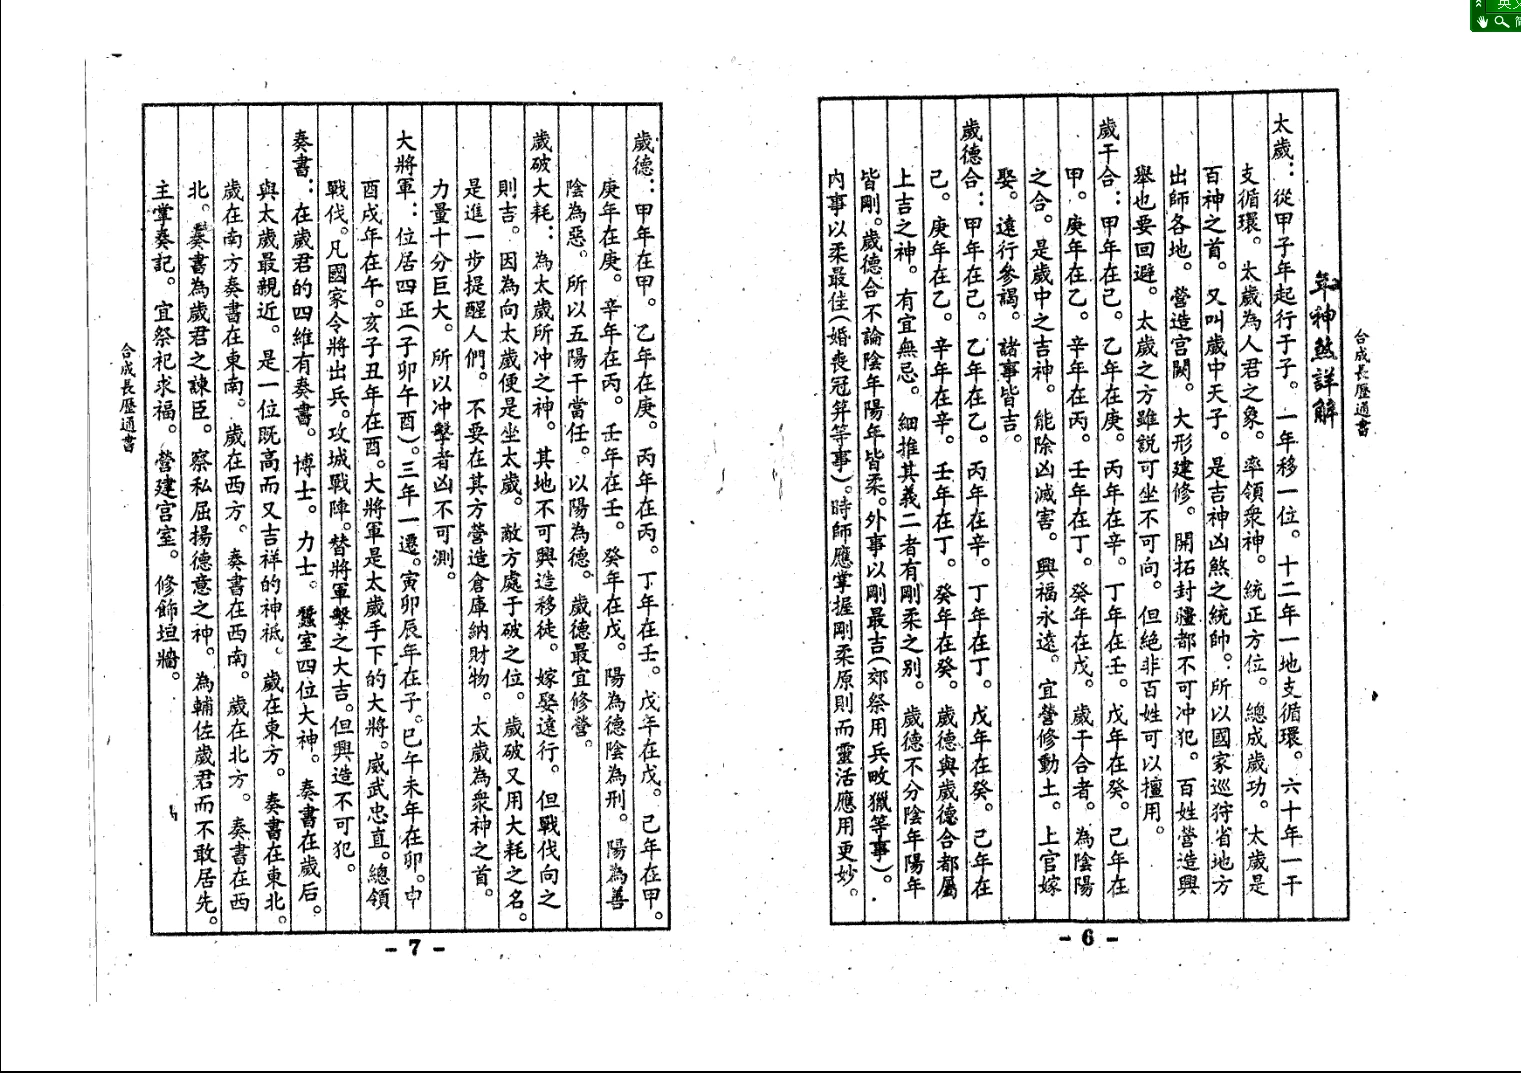 英文
簡
合成長歷通書
年神煞詳解
太歲：從甲子年起行于子。一年移一位。十二年一地支循環。六十年一干
支循環。太歲為人君之象。率領衆神。統正方位。總成歲功。太歲是
百神之首。又叫歲中天子。是吉神凶煞之統帥。所以國家巡狩省地方
出師各地。營造宫闕。大形建修。開拓封疆都不可冲犯。百姓營造興
舉也要回避。太歲之方雖説可坐不可向。但絕非百姓可以擅用。
歲干合：甲年在己。乙年在庚。丙年在辛。丁年在壬。戊年在癸。己年在
甲。庚年在乙。辛年在丙。壬年在丁。癸年在戊。歲干合者。為陰陽
之合。是歲中之吉神。能除凶減害。興福永遠。宜營修動土。上官嫁
娶。遠行參謁。諸事皆吉。
歲德合：甲年在己。乙年在乙。丙年在辛。丁年在丁。戊年在癸。己年在
己。庚年在乙。辛年在辛。壬年在丁。癸年在癸。歲德與歲德合都屬
上吉之神。有宜無忌。細推其義二者有剛柔之别。歲德不分陰年陽年
皆剛。歲德合不論陰年陽年皆柔。外事以剛最吉（郊祭用兵畋獵等事）。
内事以柔最佳（婚喪冠笄等事）。時師應掌握剛柔原則而靈活應用更妙。
- 6 -
歲德：甲年在甲。乙年在庚。丙年在丙。丁年在壬。戊年在戊。己年在甲。
庚年在庚。辛年在丙。壬年在壬。癸年在戊。陽為德陰為刑。陽為善
陰為惡。所以五陽干當任。以陽為德。歲德最宜修營。
歲破大耗：為太歲所冲之神。其地不可興造移徒。嫁娶遠行。但戰伐向之
則吉。因為向太歲便是坐太歲。敵方處于破之位。歲破又用大耗之名。
是進一步提醒人們。不要在其方營造倉庫納財物。太歲為衆神之首。
力量十分巨大。所以冲擊者凶不可測。
大將軍：位居四正（子卯午酉）。三年一遷。寅卯辰年在子。巳午未年在卯。申
酉戌年在午。亥子丑年在酉。大將軍是太歲手下的大將。威武忠直。總領
戰伐。凡國家令將出兵。攻城戰陣。替將軍擊之大吉。但興造不可犯。
奏書：在歲君的四維有奏書。博士。力士。蠶室四位大神。奏書在歲后。
與太歲最親近。是一位既高而又吉祥的神祇。歲在東方。奏書在東北。
歲在南方奏書在東南。歲在西方。奏書在西南。歲在北方。奏書在西
北。奏書為歲君之諫臣。察私屈揚德意之神。為輔佐歲君而不敢居先。
主掌奏記。宜祭祀求福。營建宫室。修飾垣牆。
合成長歷通書
- 7 -